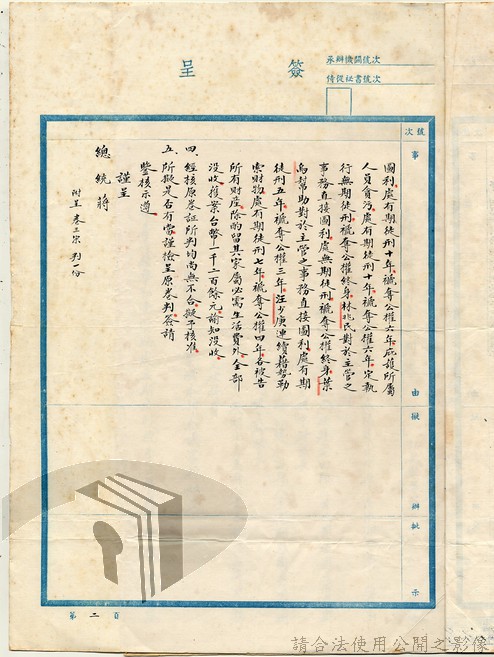 簽呈
承辦機關號次
侍從祕書號次
號次
事由
擬辦
批示
圖利處有期徒刑十年褫奪公權六年庇護所屬
人員貪污處有期徒刑十年褫奪公權六年定執
行無期徒刑褫奪公權終身林兆民對於主管之
事務直接圖利處無期徒刑褫奪公權終身葉
鳥幫助對於主管之事務直接圖利處有期
徒刑五年褫奪公權三年汪少庚連續藉勢勒
索財物處有期徒刑七年褫奪公權四年各被告
所有財產除酌留其家屬必需生活費外全部
沒收獲案台幣一千二百餘元諭知沒收
四、經核原卷証所判均尚無不合擬予核准
五、所擬是否有當謹檢呈原卷判簽請
鑒核示遵
謹呈
總統蔣
附呈卷三宗判一份
第二頁
請合法使用公開之影像